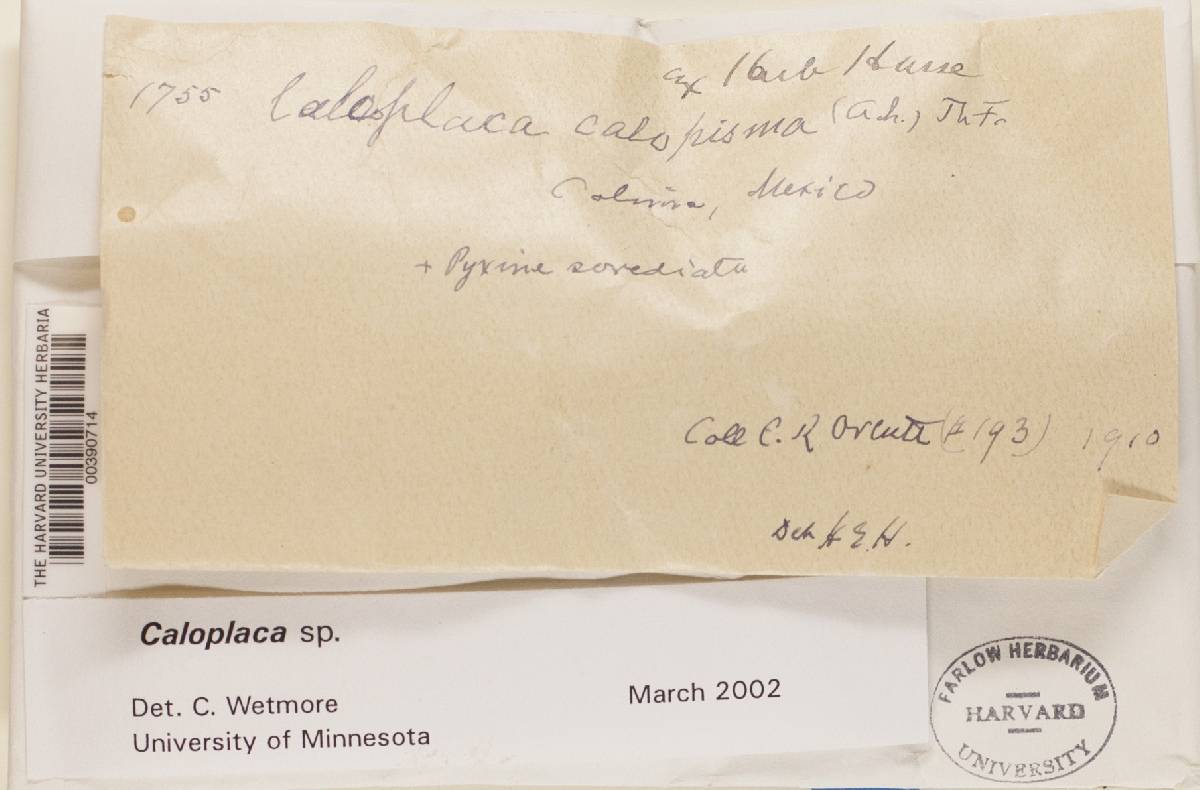 ex Herb Hasse
1755 Caloplaca calopisma (Ach.) Th Fr
Colima, Mexico
+ Pyxine sorediata
Coll C. R Orcutt (# 193) 1910
Det H. E. H.
THE HARVARD UNIVERSITY HERBARIA
00390714
Caloplaca sp.
Det. C. Wetmore March 2002
University of Minnesota
FARLOW HERBARIUM
HARVARD
UNIVERSITY